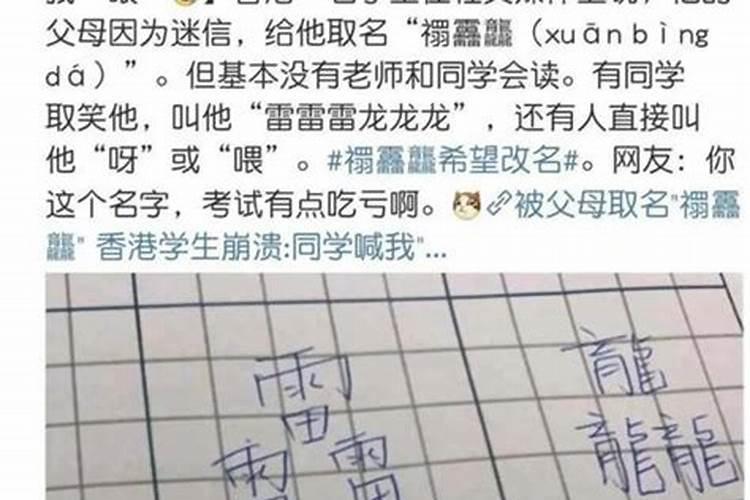 父母因为迷信，给他取名“禤靐龘（xuānbìng
dá）”。但基本没有老师和同学会读。有同学
取笑他，叫他“雷雷雷龙龙龙”，还有人直接叫
他“呀”或“喂”。#禤靐龘希望改名#。网友：你
这个名字，考试有点吃亏啊。被父母取名"禤靐
龘" 香港学生崩溃:同学喊我"...
雷 龍
雷雷 龍龍